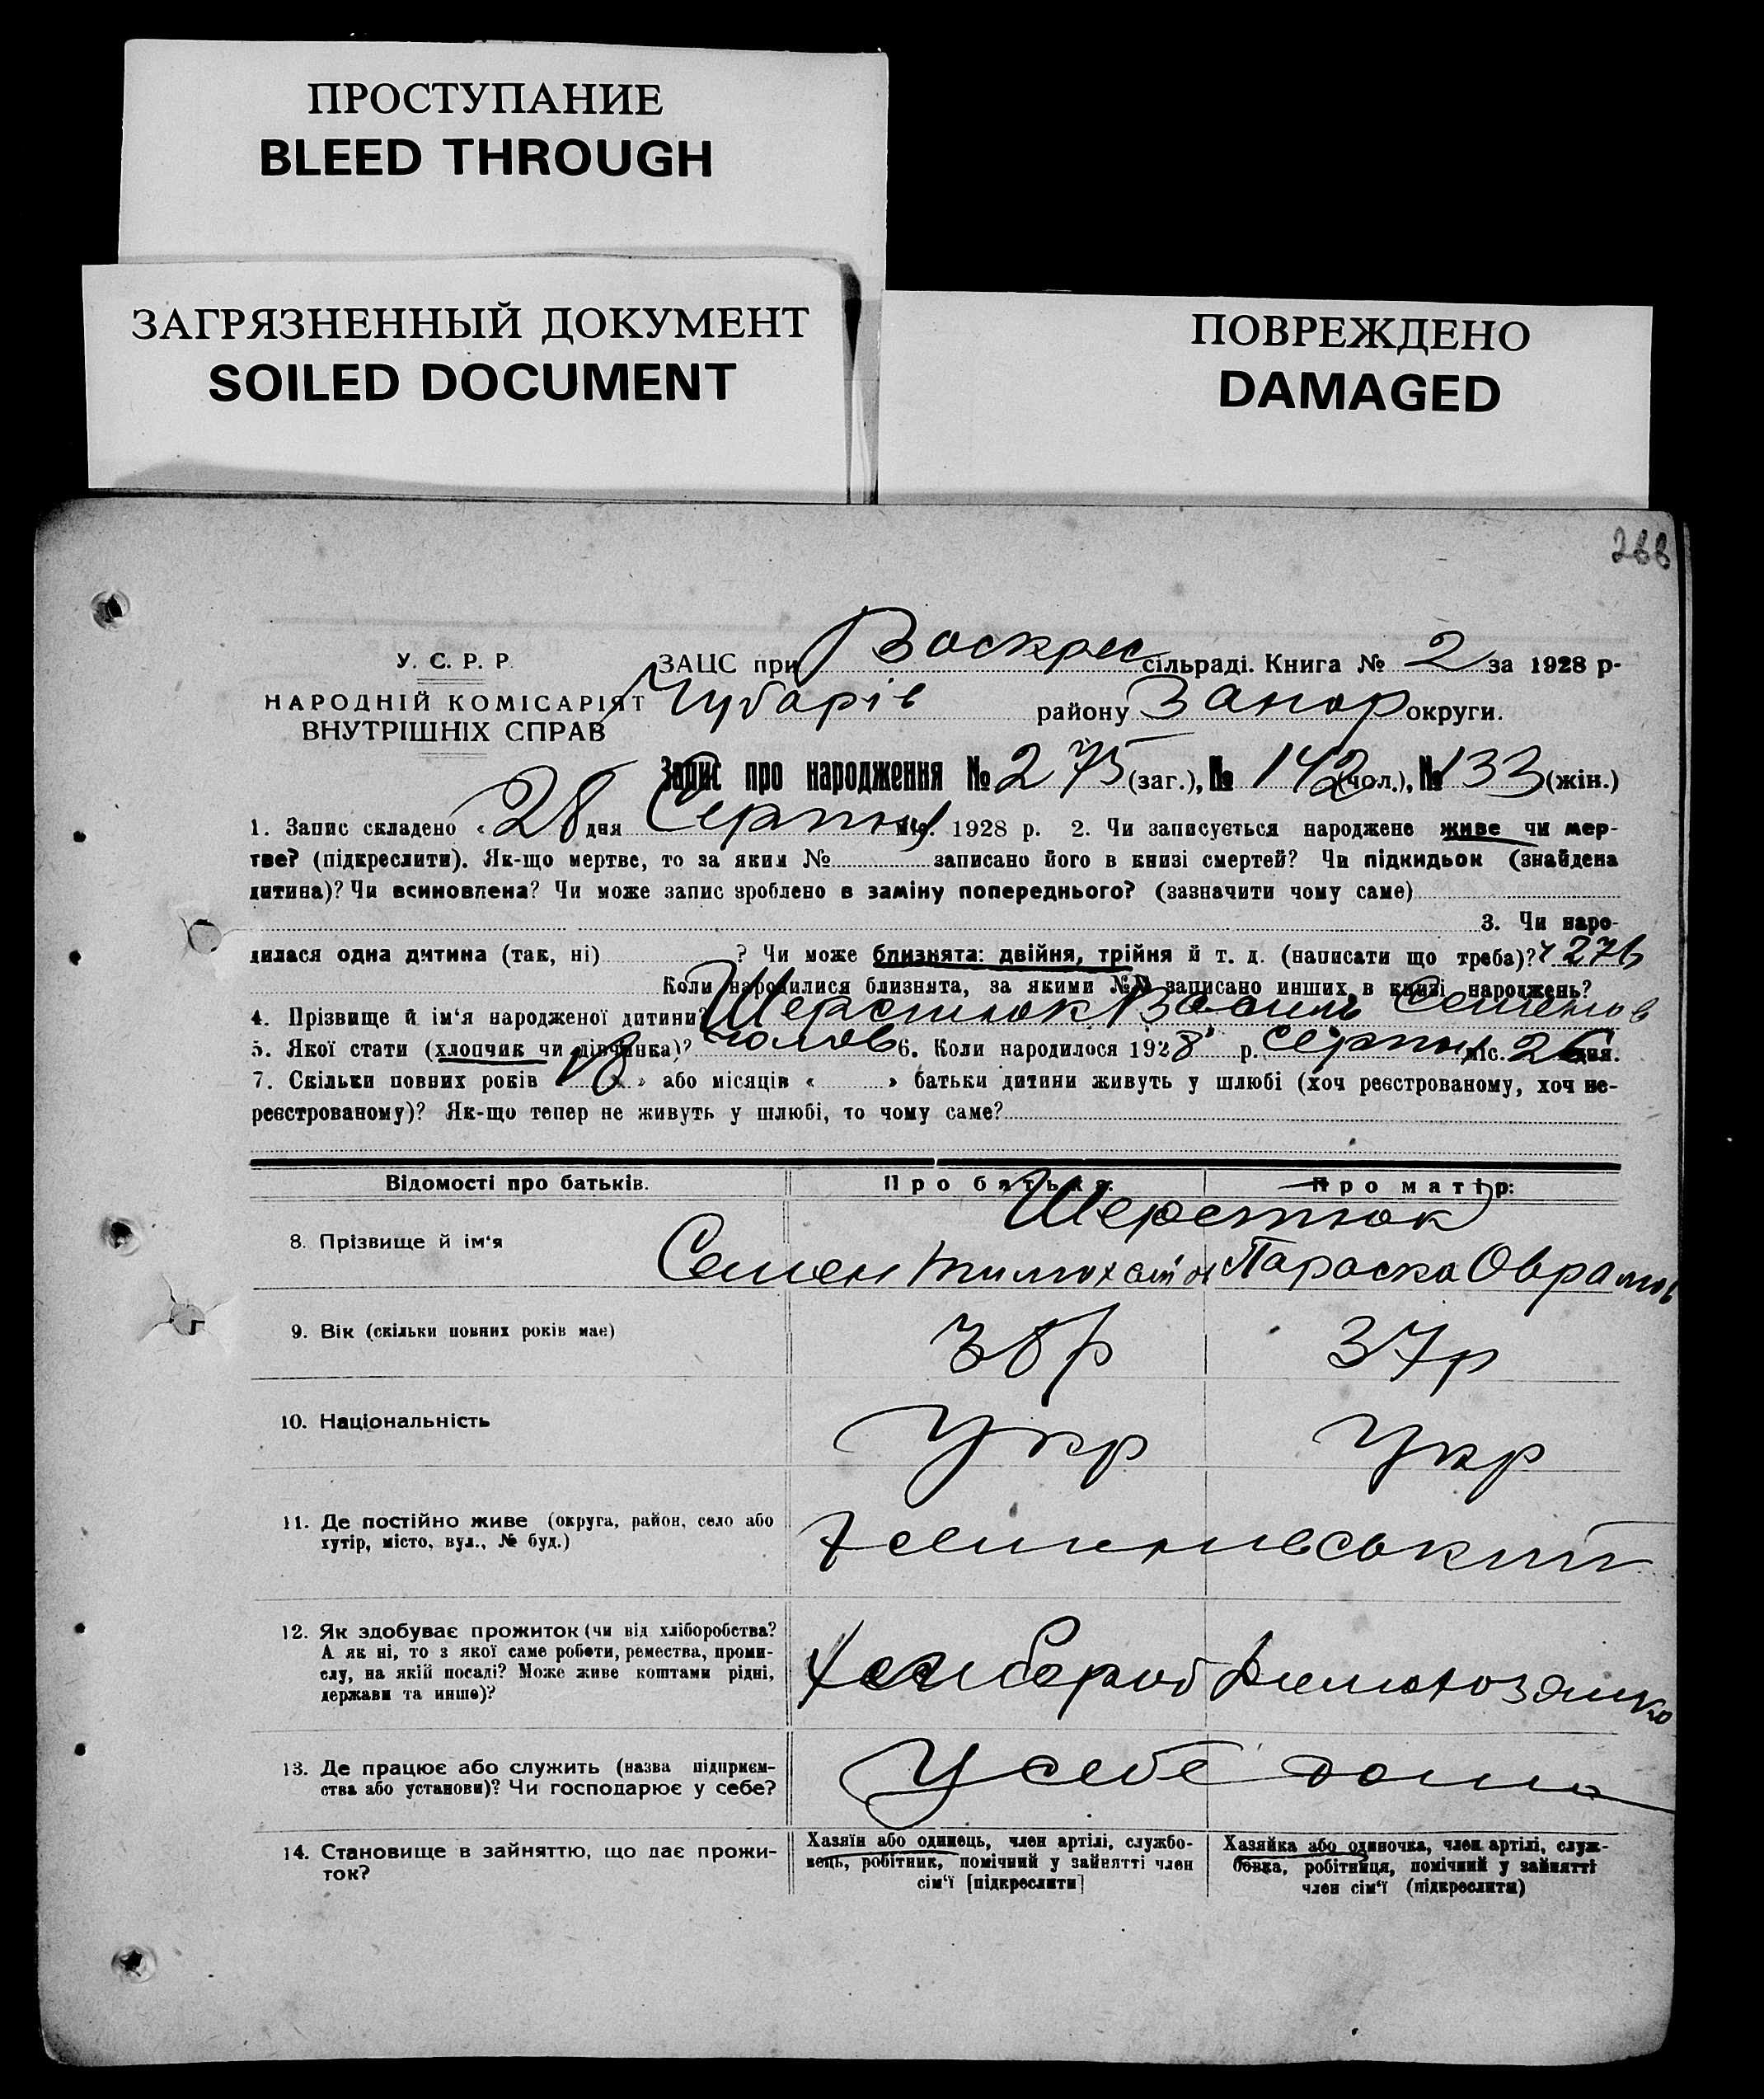 ПРОСТУПАНИЕ
BLEED THROUGH
ЗАГРЯЗНЕННЫЙ ДОКУМЕНТ
SOILED DOCUMENT
ПОВРЕЖДЕНО
DAMAGED
У. С. Р. Р.
НАРОДНІЙ КОМІСАРІЯТ
ВНУТРІШНІХ СПРАВ
ЗАЦС при Воскрес сільраді. Книга № 2 за 1928 р.
Чубарів району Запор округи.
Запис про народження № 275 (заг.), № 142 (чол.), № 133 (жін.)
1. Запис складено « 28 дня Серпня міс. 1928 р. 2. Чи записується народжене живе чи мер-
тве? (підкреслити). Як-що мертве, то за яким № записано його в книзі смертей? Чи підкидьок (знайдена
дитина)? Чи всиновлена? Чи може запис зроблено в заміну попереднього? (зазначити чому саме)
3. Чи наро-
дилася одна дитина (так, ні) ? Чи може близнята: двійня, трійня й т. д. (написати що треба)? 276
Коли народилися близнята, за якими №№ записано инших в книзі народжень?
4. Прізвище й ім'я народженої дитини? Шерстюк Василь Семенов
5. Якої стати (хлопчик чи дівчинка)? чолов 6. Коли народилося 1928 р. Серпня міс. 26 дня.
7. Скільки повних років « 18 » або місяців « » батьки дитини живуть у шлюбі (хоч реєстрованому, хоч не-
реєстрованому)? Як-що тепер не живуть у шлюбі, то чому саме?
Відомості про батьків. Про батька: Про матір:
8. Прізвище й ім'я Шерстюк
Семен Параска Оврамов
9. Вік (скільки повних років має) 38р 37р
10. Національність Укр Укр
11. Де постійно живе (округа, район, село або
хутір, місто, вул., № буд.)
12. Як здобуває прожиток (чи від хліборобства?
А як ні, то з якої саме роботи, ремества, проми-
слу, на якій посаді? Може живе коштами рідні,
держави та инше)?
13. Де працює або служить (назва підприєм-
ства або установи)? Чи господарює у себе? У себе дома
14. Становище в зайняттю, що дає прожи-
ток?
Хазяїн або одинець, член артілі, службо-
вець, робітник, помічний у зайнятті член
сім'ї [підкреслити]
Хазяйка або одиночка, член артілі, служ-
бовка, робітниця, помічний у зайнятті
член сім'ї (підкреслити)